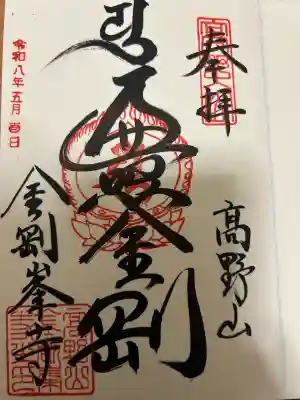 奉拝
高野山
遍照金剛
金剛峯寺
令和八年五月 日